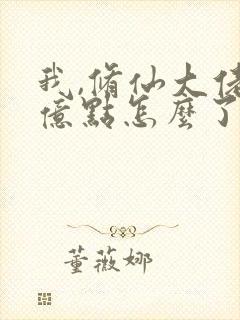 我,脩仙大佬
億點怎麼了
董薇娜